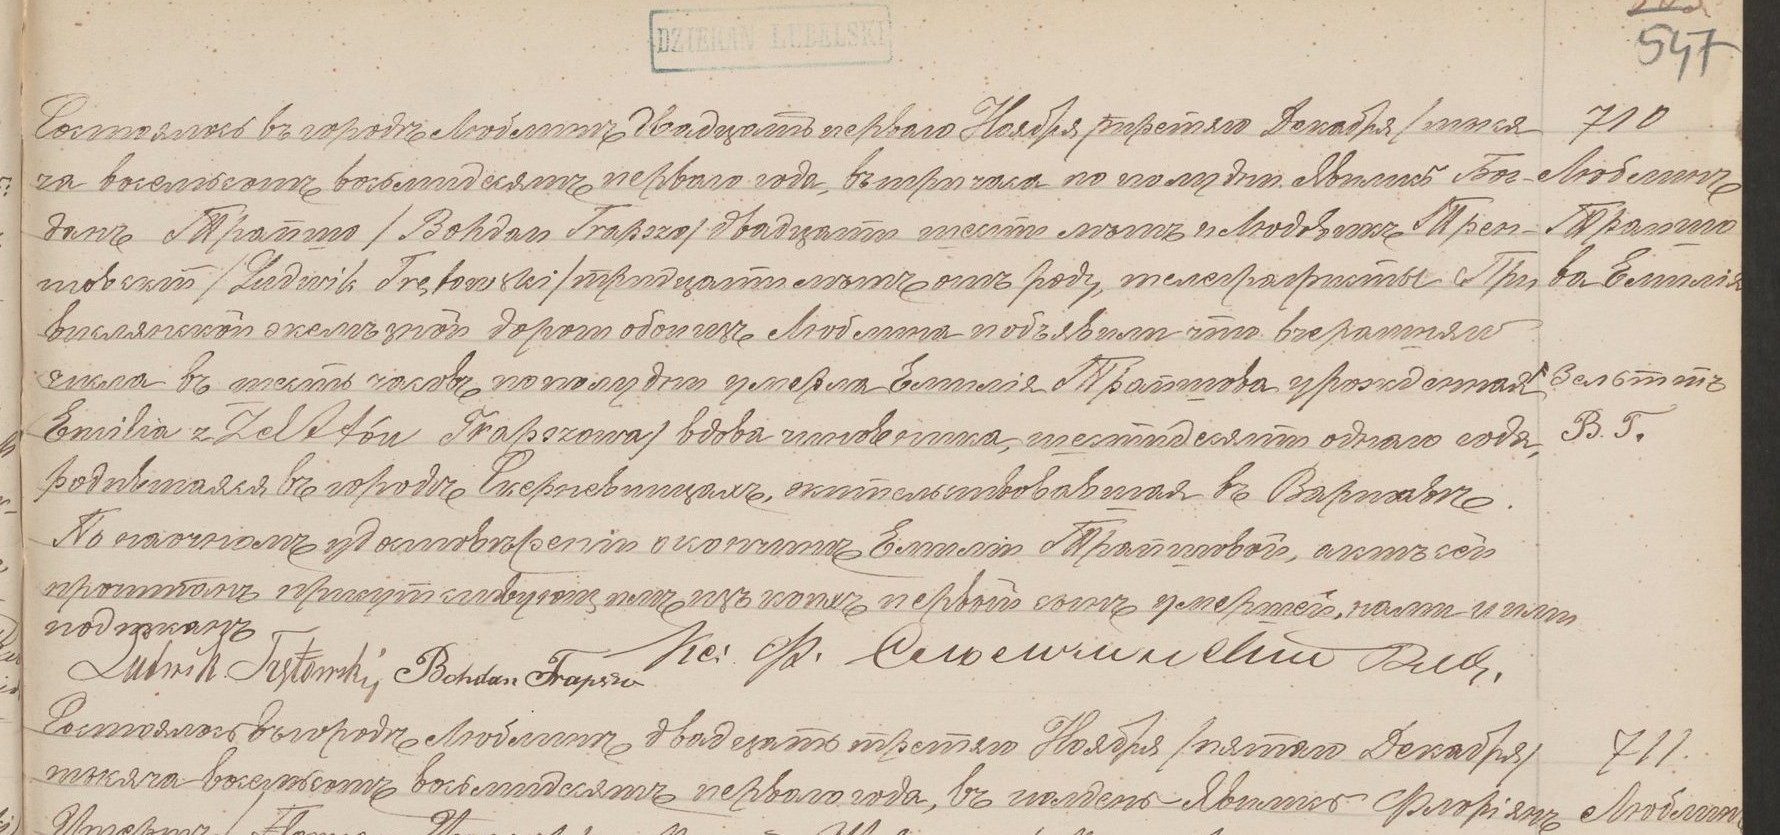 DZIEKAN LUBELSKI
547
Состоялось въ городѣ Люблинѣ двадцать перваго Ноября /третяго Декабря/ тыся-
710
ча восемьсотъ восемьдесятъ перваго года, въ три часа по полудни. Явились Бог-
Люблинъ
данъ Трапшо /Bohdan Trapszo/ двадцати шести лѣтъ и Людвикъ Трен-
Трапшо
товскій /Ludwik Trętowski/ тридцати лѣтъ отъ роду, телеграфисты При
ва Емилія
вислянской желѣзной дороги обои изъ Люблина и объявили что вчерашняго
числа въ шесть часовъ по полудни умерла Емилія Трапшова урожденная
Зельттъ
Emilia z Zelttów Trapszowa/ вдова чиновника, шестидесяти однаго года,
В. Г.
родившаяся въ городѣ Скерневицахъ, жительствовавшая въ Варшавѣ.
По наочномъ удостовѣреніи о кончинѣ Емиліи Трапшовой, актъ сей
прочитанъ присутствующимъ изъ коихъ первый сынъ умершей, нами и ими
подписанъ
Ludwik Trętowski Bohdan Trapszo Кс: Ф.
Состоялось въ городѣ Люблинѣ двадцать третяго Ноября /пятаго Декабря/
711.
тысяча восемьсотъ восемьдесятъ перваго года, въ полдень Явились Флоріянъ
Люблинъ